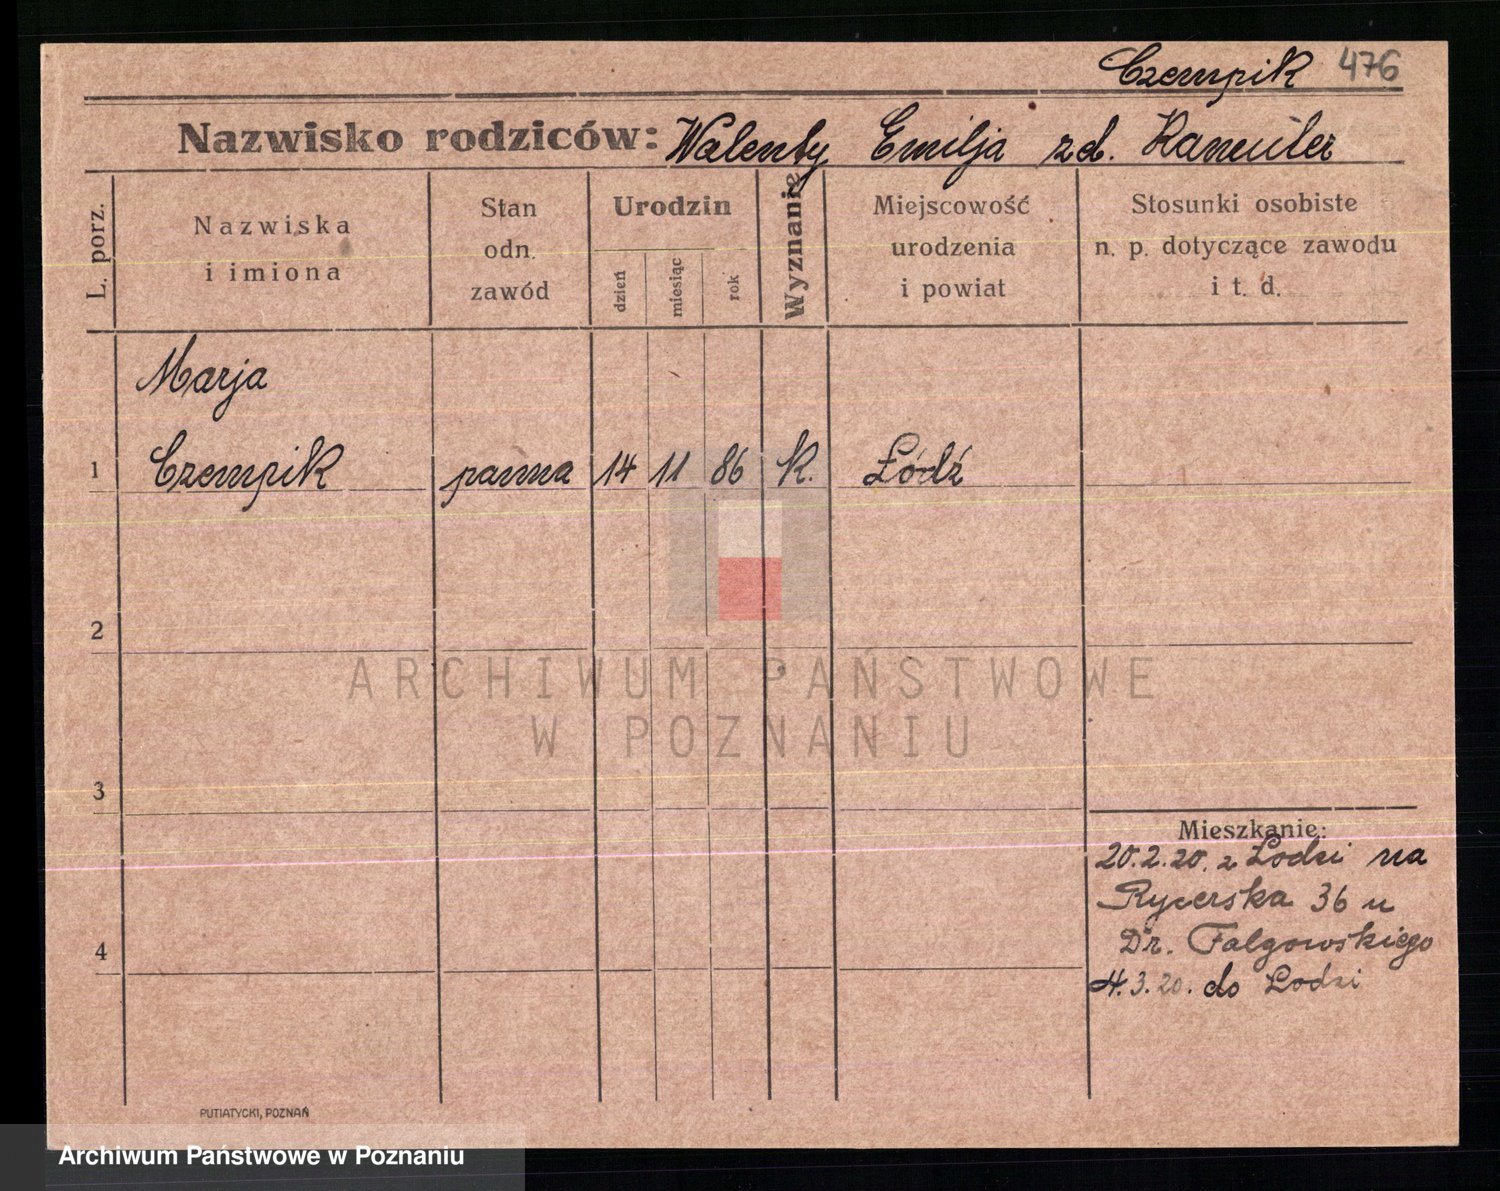 Czempik 476
Nazwisko rodziców: Walenty Emilja zd.
L. porz.
Nazwiska
i imiona
Stan
odn.
zawód
Urodzin
dzień
miesiąc
rok
Wyznanie
Miejscowość
urodzenia
i powiat
Stosunki osobiste
n. p. dotyczące zawodu
i t. d.
Marja
1 Czempik panna 14 11 86 k. Łódź
2
ARCHIWUM PAŃSTWOWE
W POZNANIU
3
Mieszkanie:
20.2.20. z Lodzi na
Rycerska 36 u
4 Dr. Falgowskiego
4.3.20. do Lodzi
PUTIATYCKI, POZNAŃ
Archiwum Państwowe w Poznaniu